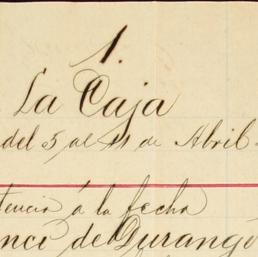 1.
La Caja
del 5 al 11 de Abril
tencia á la fecha
de Durango